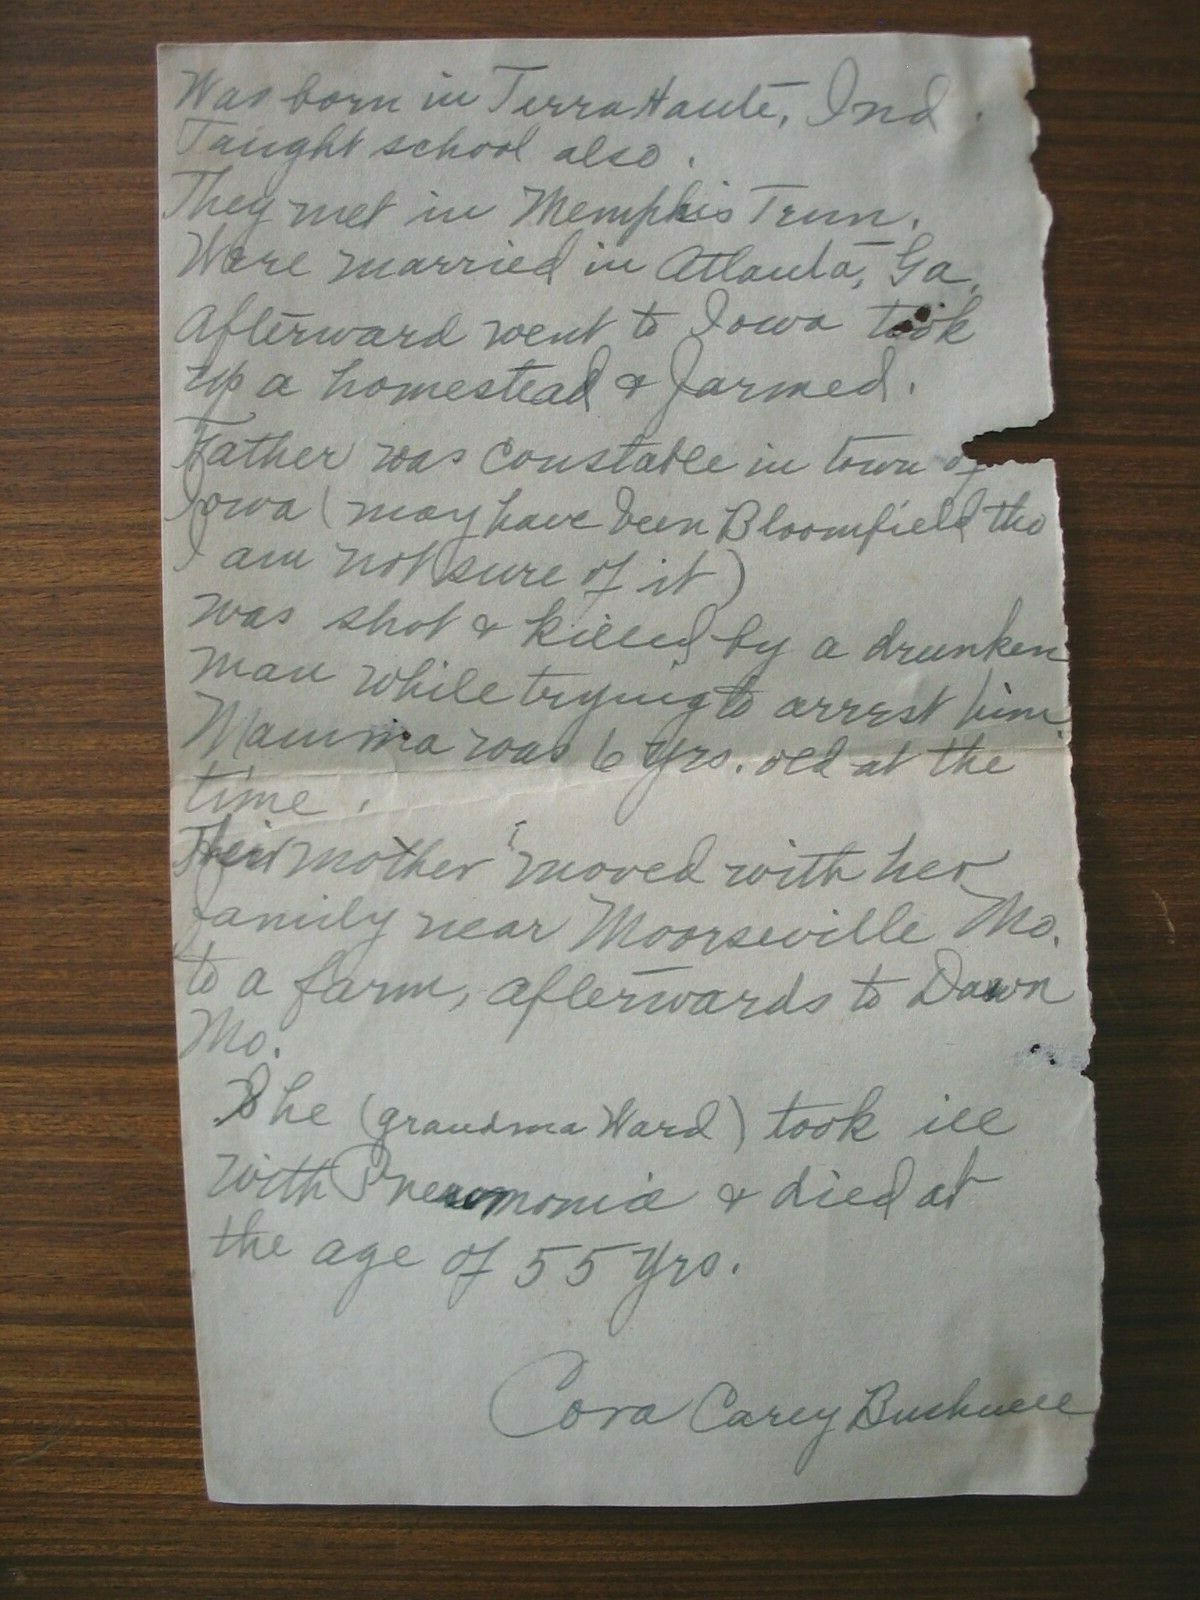 Was born in Terra Haute, Ind.
Taught school also.
They met in Memphis Tenn.
Were married in Atlanta, Ga.
Afterward went to Iowa took
up a homestead & farmed.
Father was constable in town of
Iowa (may have been Bloomfield tho
I am not sure of it)
was shot & killed by a drunken
man while trying to arrest him
Mamma was 6 yrs. old at the
time.
Their mother moved with her
family near Mooresville Mo.
to a farm, afterwards to Dawn
Mo.
She (grandma Ward) took ill
with Pneumonia & died at
the age of 55 yrs.
Cora Carey Bushnell